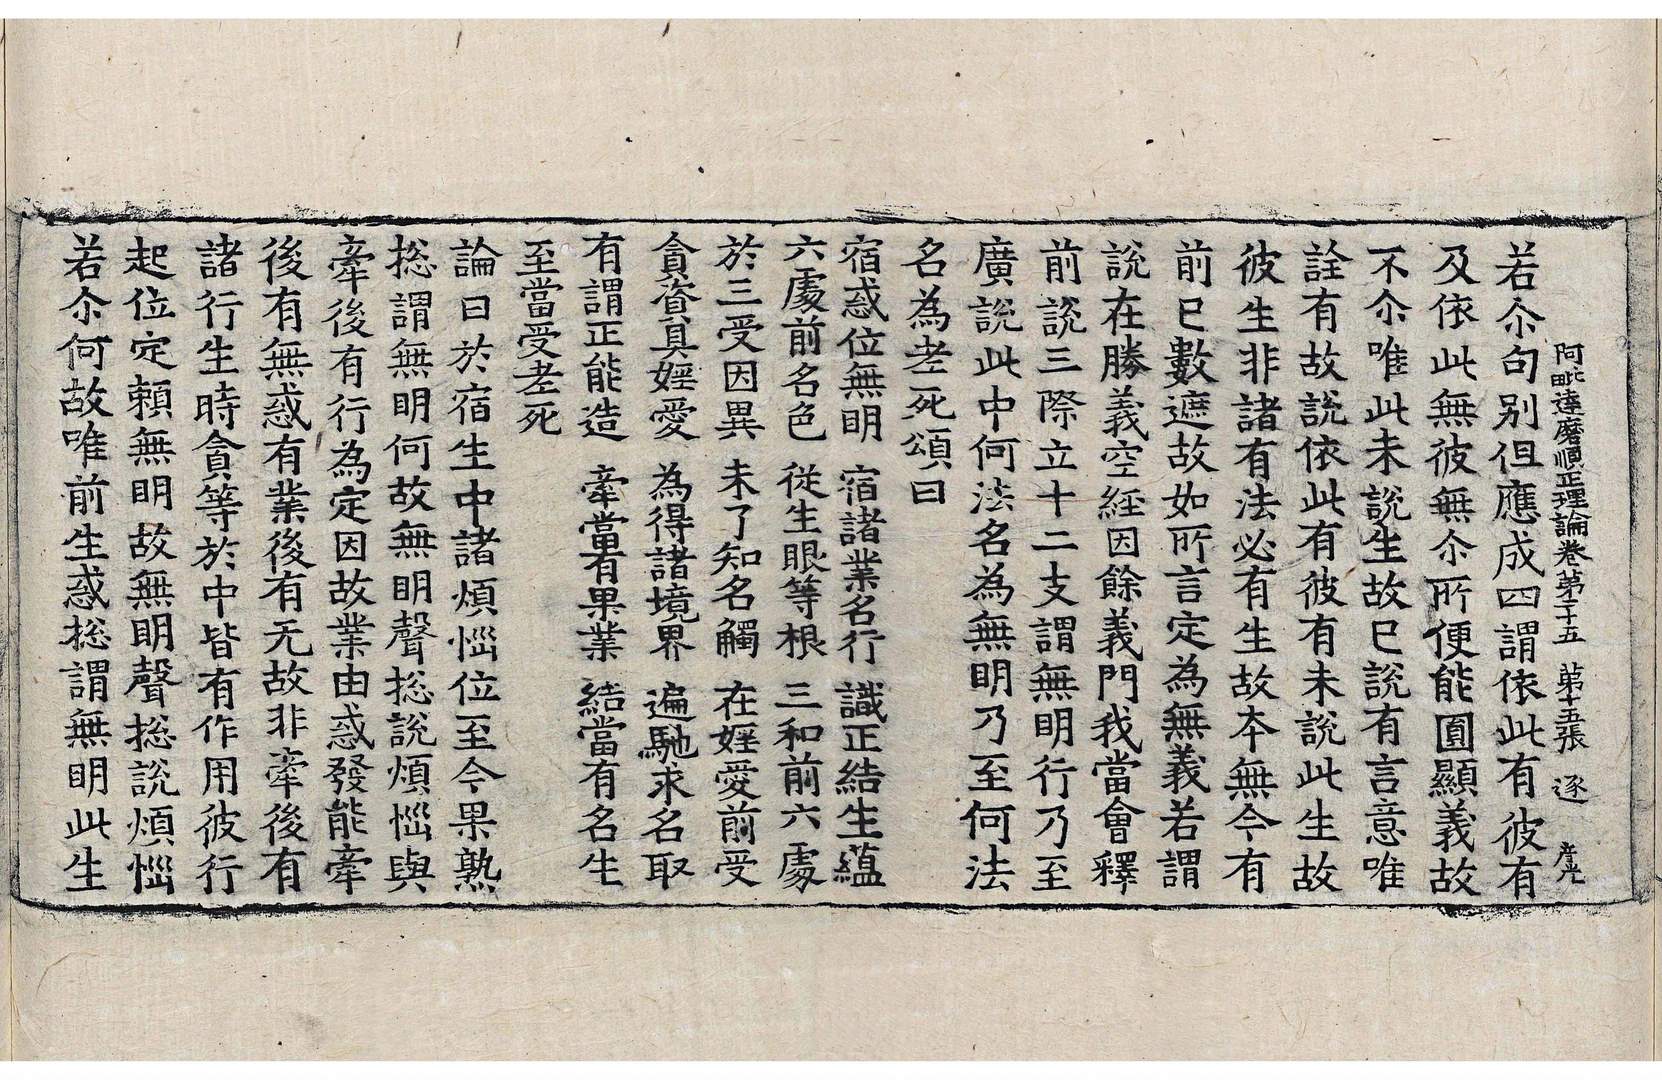 阿毗達磨順正理論卷第二十五　第十五張　逐　彦光
若尒句別但應成四謂依此有彼有
及依此無彼無尒所便能圓顯義故
不尒唯此未說生故巳說有言意唯
詮有故說依此有彼有未說此生故
彼生非諸有法必有生故本無今有
前巳數遮故如所言定為無義若謂
說在勝義空經因餘義門我當會釋
前說三際立十二支謂無明行乃至
廣說此中何法名為無明乃至何法
名為老死頌曰
宿惑位無明　宿諸業名行　識正結生蘊
六處前名色　從生眼等根　三和前六處
於三受因異　未了知名觸　在婬愛前受
貪資具婬愛　為得諸境界　遍馳求名取
有謂正能造　牽當有果業　結當有名生
至當受老死
論曰於宿生中諸煩惱位至今果熟
揔謂無明何故無明聲揔說煩惱與
牽後有行為定因故業由惑發能牽
後有無惑有業後有无故非牽後有
諸行生時貪等於中皆有作用彼行
起位定賴無明故無明聲揔說煩惱
若尒何故唯前生惑揔謂無明此生